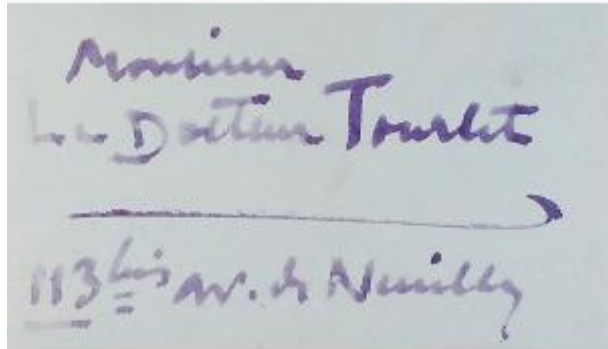 Monsieur
Le Docteur Tourlet
113 bis av. de Neuilly